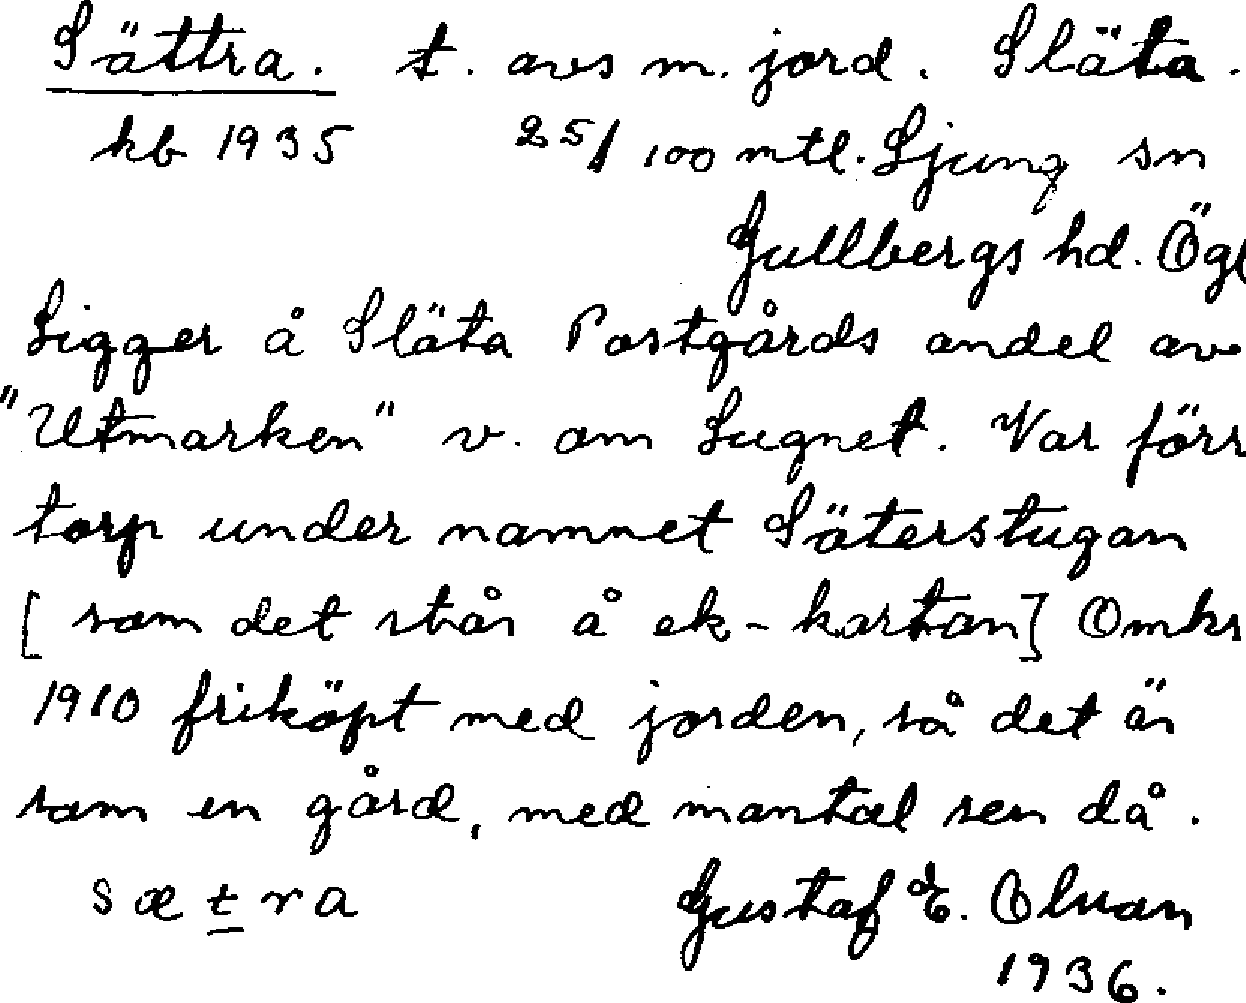 Sättra. t. avs m. jord. Släta.
kb 1935 25/100 mtl. Ljung sn
Gullbergs hd. Ögl
Ligger å Släta Postgårds andel av
"Utmarken" v. om Lugnet. Var förr
torp under namnet Säterstugan
[som det står å ek-kartan] Omkr
1910 friköpt med jorden, så det är
som en gård, med mantal sen då.
sætra Gustaf E. Olson
1936.